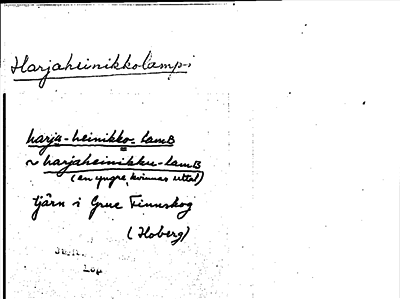 Harjaheinikkolampi
harja-heinikko-lamB
~ harjaheinikku-lamB
(en yngre kvinnas uttal)
tjärn i Grue Finnskog
(Hoberg)